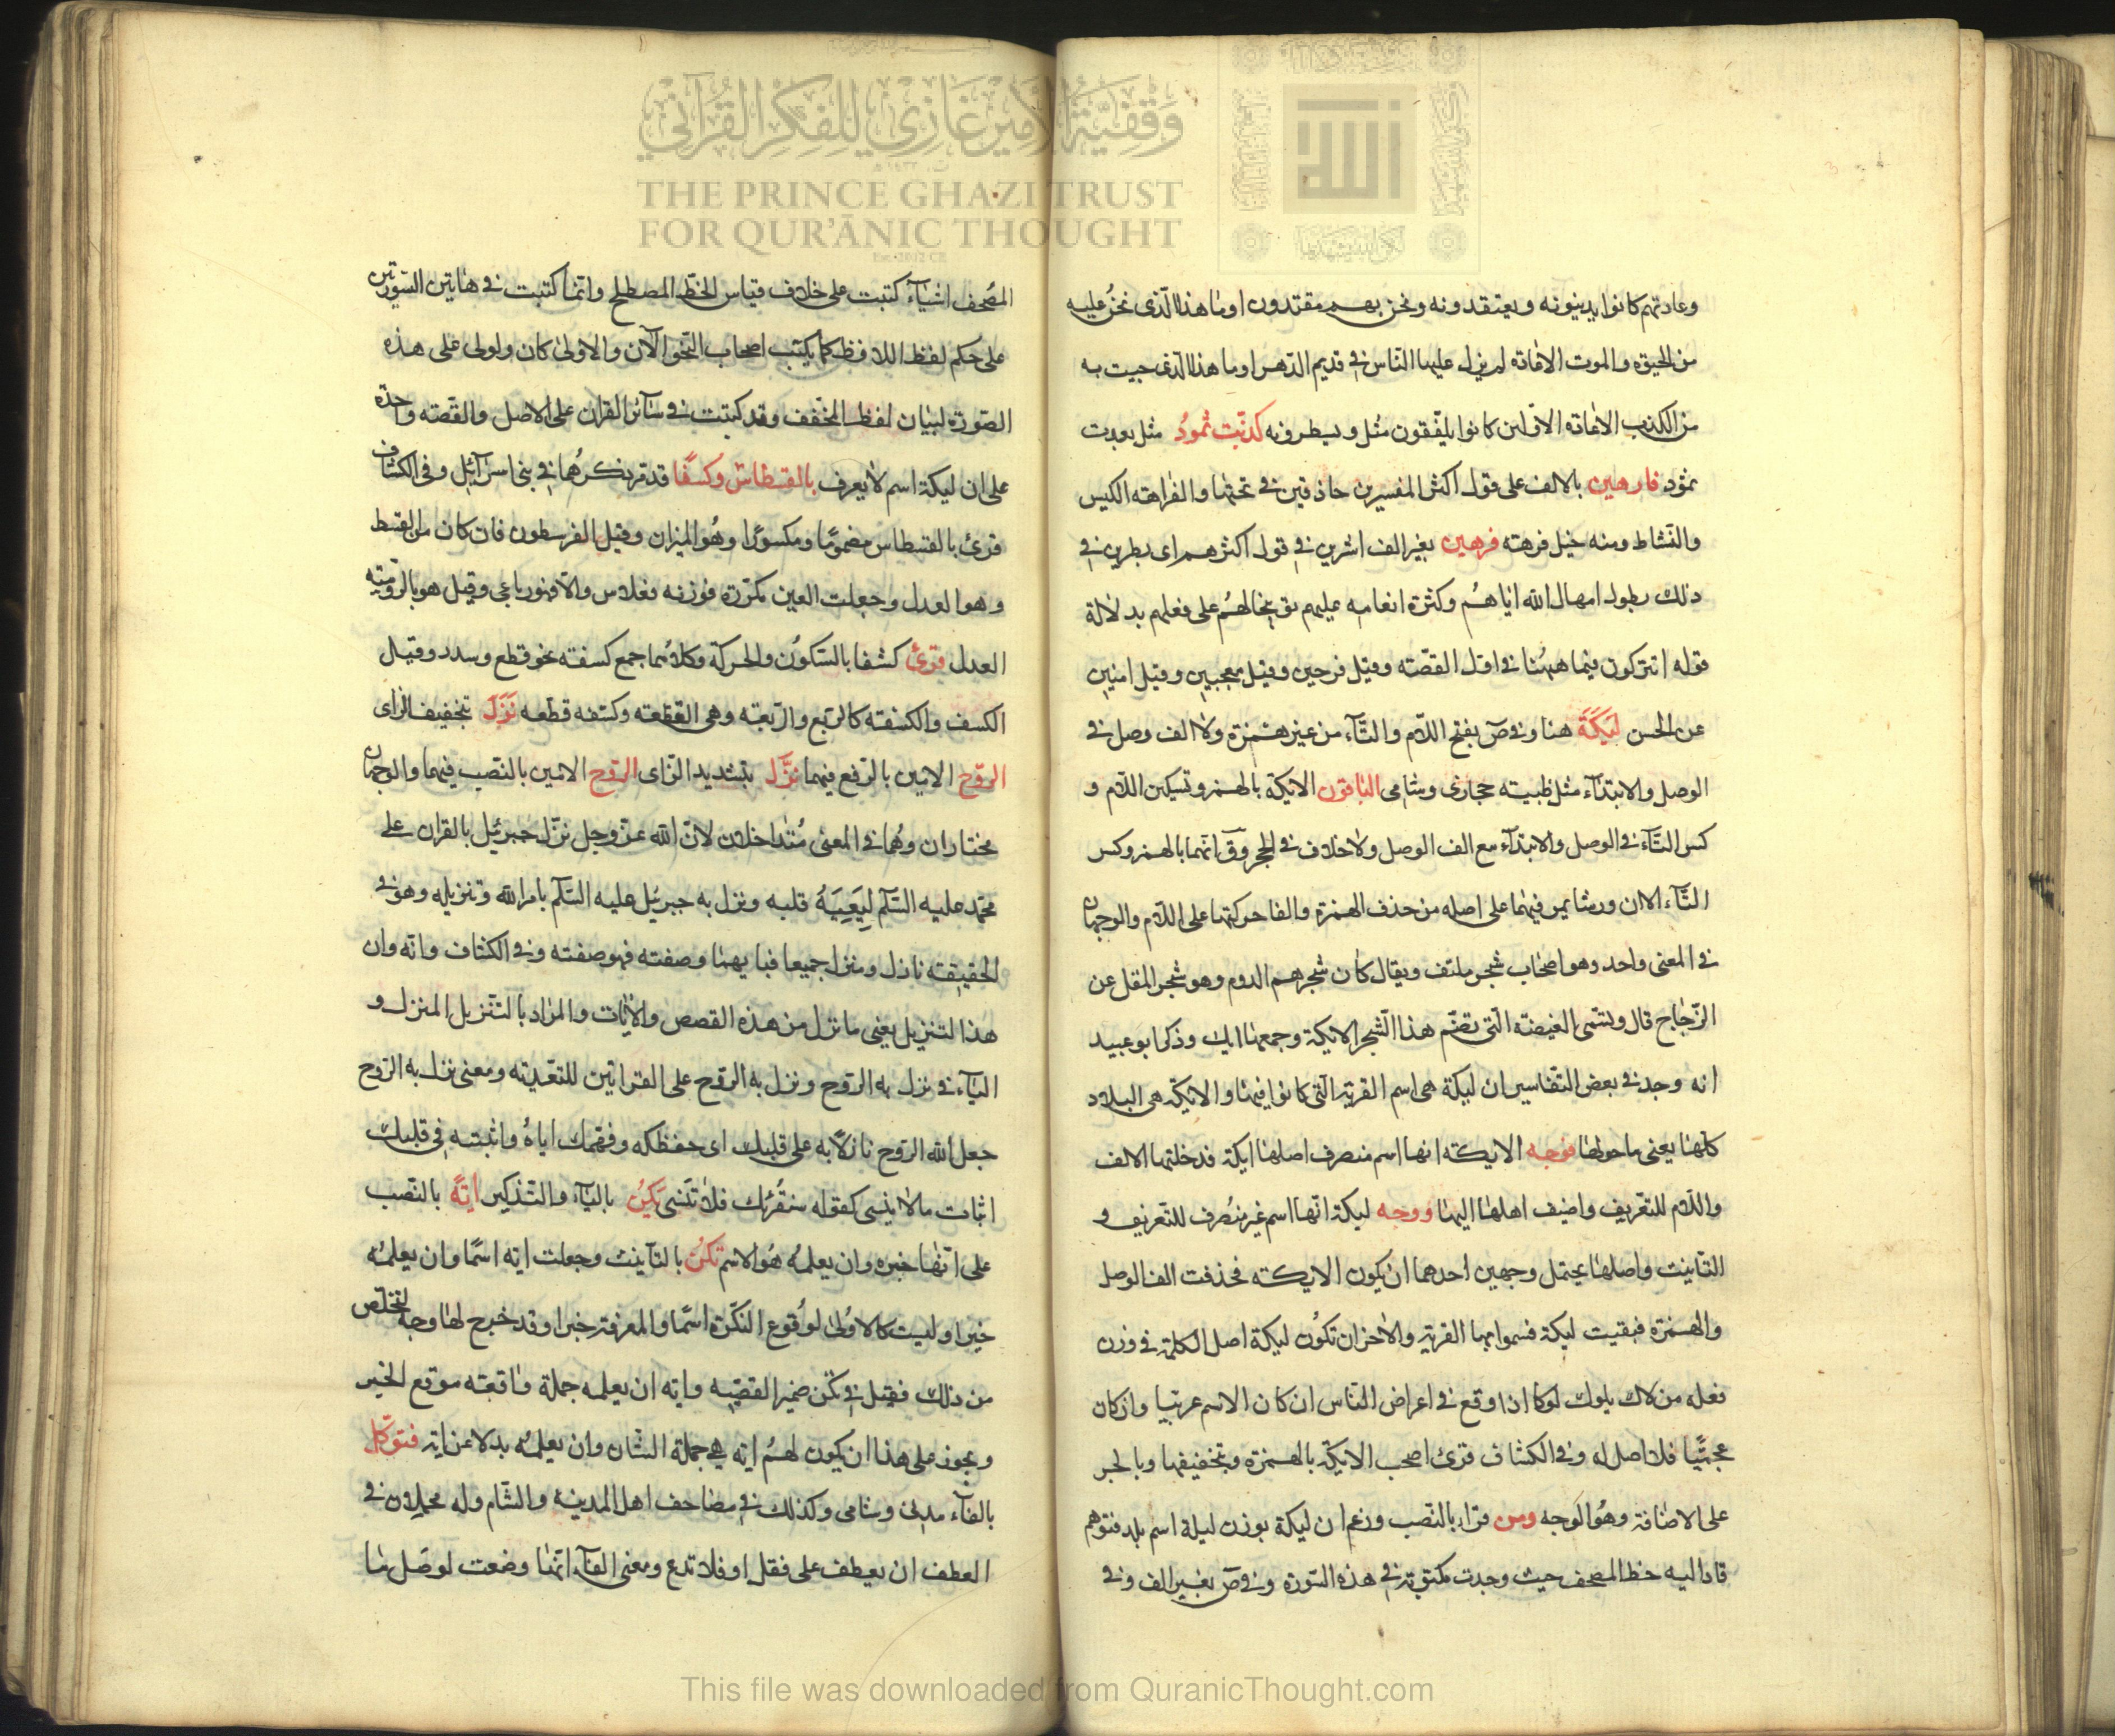 وقفية الأمير غازي للفكر القرآني
THE PRINCE GHAZI TRUST
FOR QUR'ĀNIC THOUGHT
وعادتهم كانوا يدينونه ويعتقدونه ونحن بهم مقتدون اوما هذا الذى نحن عليه
من الحيوة والموت الاعادة لم يزل عليها الناس فى قديم الدهر اوما هذا الذى جيت به
من الكذب الاعادة الاولين كانوا يلفقون مثل ويسطرونه كذبت ثمود مثل بعدت
ثمود فارهين بالالف على قول اكثر المفسرين حاذقين فى نحتها والفراهة الكيس
والنشاط ومنه خيل فرهة فرهين بغير الف اشرين فى قول اكثرهم اى بطرين فى
ذلك بطول امهال الله اياهم وكثرة انعامه عليهم توبيخا لهم على فعلهم بدلالة
قوله اتتركون فيما ههنا فى اول القصة وقيل فرحين وقيل معجبين وقيل امنين
عن الحسن ليكة هنا وفى ص بفتح اللام والتاء من غير همزة ولا الف وصل فى
الوصل والابتداء مثل طيبة حجازى وشامى الباقون الايكة بالهمز وتسكين اللام و
كسر التاء فى الوصل والابتداء مع الف الوصل ولا خلاف فى الحجر وق انهما بالهمز وكسر
التاء الا ان ورشا يمر فيهما على اصله من حذف الهمزة والقا حركتها على اللام والوجهان
فى المعنى واحد وهو اصحاب شجر ملتف ويقال كان شجرهم الدوم وهو شجر المقل عن
الزجاج قال ويسمى الغيضة التى تضم هذا الشجر الايكة وجمعها ايك وذكر ابو عبيد
انه وجد فى بعض التفاسير ان ليكة هى اسم القرية التى كانوا فيها والايكة هى البلاد
كلها يعنى ما حولها فوجه الايكة انها اسم منصرف اصلها ايكة فدخلتها الالف
واللام للتعريف واضيف اهلها اليها ووجه ليكة انها اسم غير منصرف للتعريف و
التانيث واصلها يحتمل وجهين احدهما ان يكون الايكة فحذفت الف الوصل
والهمزة فبقيت ليكة فسموا بها القرية والاخر ان تكون ليكة اصل الكلمة فى وزن
فعلة من لاك يلوك لوكا اذا وقع فى اعراض الناس ان كان الاسم عربيا وان كان
عجميا فلا اصل له وفى الكشاف قرئ اصحب الايكة بالهمزة وبتخفيفها وبالجر
على الاضافة وهو الوجه ومن قرا بالنصب وزعم ان ليكة بوزن ليلة اسم بلد فتوهم
قاد اليه خط المصحف حيث وجدت مكتوبة فى هذه السورة وفى ص بغير الف وفى
المصحف اشياء كتبت على خلاف قياس الخط المصطلح وانما كتبت فى هاتين السورتين
على حكم لفظ اللافظ كما يكتب اصحاب النحو الان والاولى كان ولولى على هذه
الصورة لبيان لفظ المخفف وقد كتبت فى سائر القران على الاصل والقصة واحدة
على ان ليكة اسم لا يعرف بالقسطاس وكسفا قد مر ذكرهما فى بنى اسرائيل وفى الكشاف
قرئ بالقسطاس مضموما ومكسورا وهو الميزان وقيل القرسطون فان كان من القسط
وهو العدل وجعلت العين مكررة فوزنه فعلاس والا فهو رباعى وقيل هو بالرومية
العدل قرئ كسفا بالسكون والحركة وكلاهما جمع كسفة نحو قطع وسدد وقيل
الكسف والكسفة كالريع والريعة وهى القطعة وكسفه قطعه نزل بتخفيف الزاى
الروح الامين بالرفع فيهما نزل بتشديد الزاى الروح الامين بالنصب فيهما والوجهان
مختاران وهما فى المعنى متداخلان لان الله عز وجل نزل جبرئيل بالقران على
محمد عليه السلم ليعيه قلبه ونزل به جبرئيل عليه السلم بامر الله وتنزيله وهو فى
الحقيقة نازل ومنزل جميعا فبايهما وصفته فهو صفته وفى الكشاف وانه وان
هذا التنزيل يعنى ما نزل من هذه القصص والايات والمراد بالتنزيل المنزل و
الباء فى نزل به الروح ونزل به الروح على القراتين للتعدية ومعنى نزل به الروح
جعل الله الروح نازلا به على قلبك اى حفظكه وفهمك اياه واثبته فى قلبك
اثبات ما لا ينسى كقوله سنقرئك فلا تنسى يكن بالياء والتذكير اية بالنصب
على انها خبره وان يعلمه هو الاسم تكن بالتانيث وجعلت اية اسما وان يعلمه
خبرا وليست كالاولى لوقوع النكرة اسما والمعرفة خبرا وقد خرج لها وجه لتخلص
من ذلك فقيل فى تكن ضمير القصة واية ان يعلمه جملة واقعة موقع الخبر
ويجوز على هذا ان يكون لهم اية هى جملة الشان وان يعلمه بدلا عن اية فتوكل
بالفاء مدنى وشامى وكذلك فى مصاحف اهل المدينة والشام وله محملان فى
العطف ان يعطف على فقل او فلا تدع ومعنى الفاء انها وضعت لوصل ما
This file was downloaded from QuranicThought.com